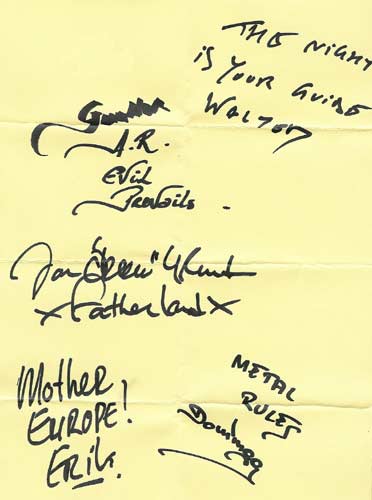 THE NIGHT
IS YOUR GUIDE
WALTER
A.R.
EVIL
PREVAILS.
Jan
xFatherlandx
Mother
EUROPE!
ERIK.
METAL
RULES
Domingo